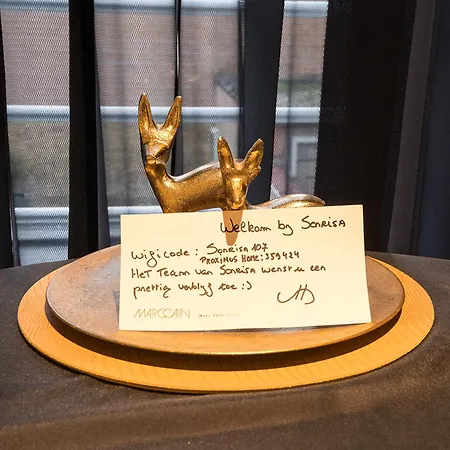 Welkom by Sonrisa
Wifi code : Sonrisa 107
PROXIMUS Home: 359424
Het Team van Sonrisa wenst u een
prettig verblijf toe :)
MARCCAIN
Marc Cain